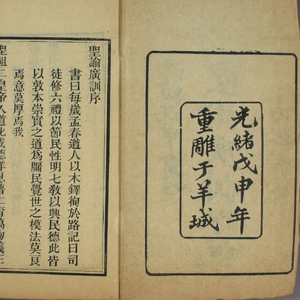 光緒戊申年
重雕于羊城
聖諭廣訓序
書曰每歲孟春遒人以木鐸徇於路記曰司
徒修六禮以節民性明七教以興民德此皆
以敦本崇實之道爲牖民覺世之模法莫良
焉意莫厚焉我
聖祖仁皇帝久道化成德洋恩普仁育萬物義正